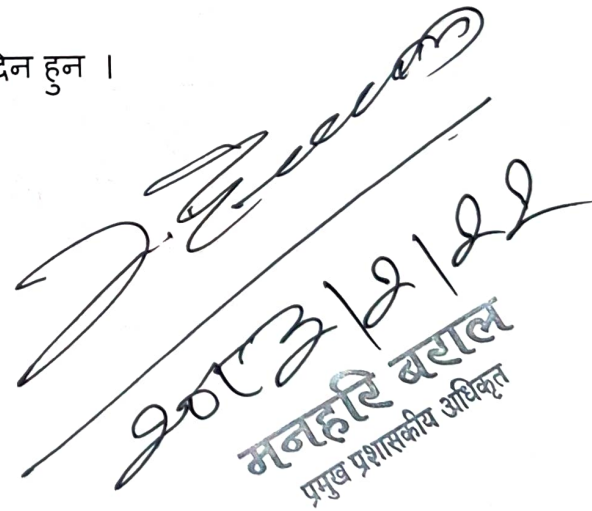 देन हुन ।
२०८३/२/२२
मनहरि बराल
प्रमुख प्रशासकीय अधिकृत